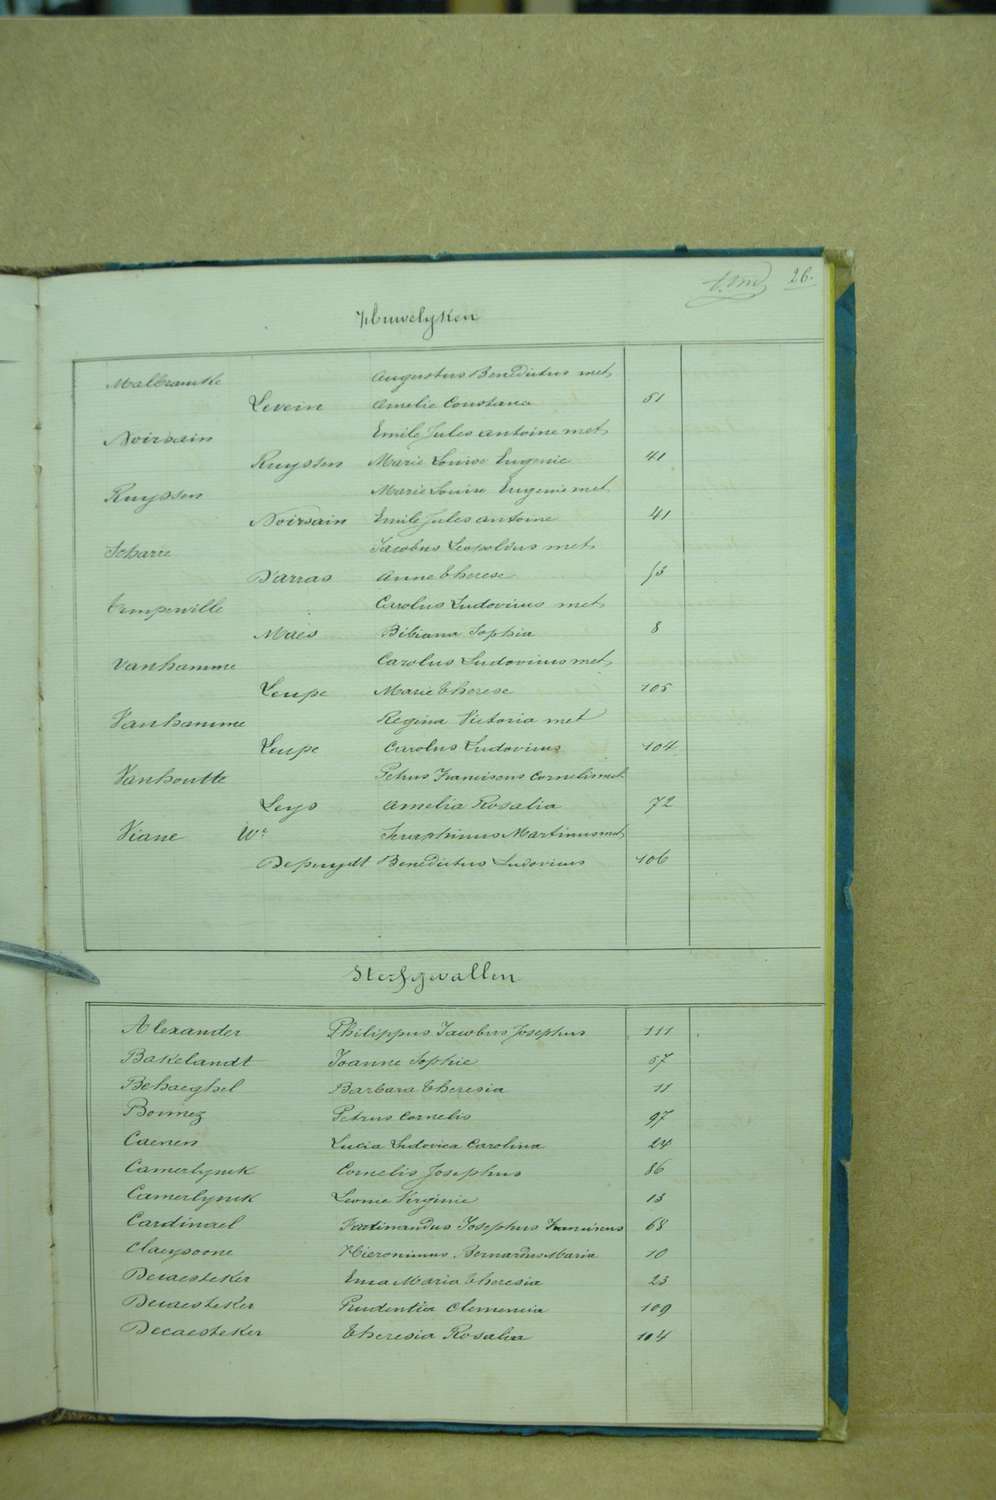 26.
Huwelyken
Malbrancke Augustus Benedictus met
Leveire Amelie Constance 51
Noirsain Emile Jules Antoine met
Ruyssen Marie Louise Eugenie 41
Ruyssen Marie Louise Eugenie met
Noirsain Emile Jules Antoine 41
Scharre Jacobus Leopoldus met
Darras Anne Therese 53
Tempeville Carolus Ludovicus met
Maes Bibiana Sophia 8
Vanhamme Carolus Ludovicus met
Leupe Marie Therese 105
Vanhamme Regina Victoria met
Leupe Carolus Ludovicus 104
Vanhoutte Petrus Franciscus Cornelis met
Leys Amelia Rosalia 72
Viane We Seraphinus Martinus met
Depuydt Benedictus Ludovicus 106
Sterfgevallen
Alexander Philippus Jacobus Josephus 111
Bakelandt Joanne Sophie 57
Behaeghel Barbara Theresia 11
Bonnez Petrus Cornelis 97
Caenen Lucia Ludovica Carolina 24
Camerlynck Cornelis Josephus 86
Camerlynck Leonie Virginie 13
Cardinael Ferdinandus Josephus Franciscus 68
Claeysoone Hieronimus Bernardus Maria 10
Decaesteker Ema Maria Theresia 23
Decaesteker Prudentia Clemencia 109
Decaesteker Theresia Rosalia 104